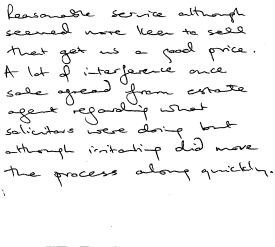 Reasonable service although
seemed more keen to sell
that get us a good price.
A lot of interference once
sale agreed from estate
agent regarding what
solicitors were doing but
although irritating did move
the process along quickly.